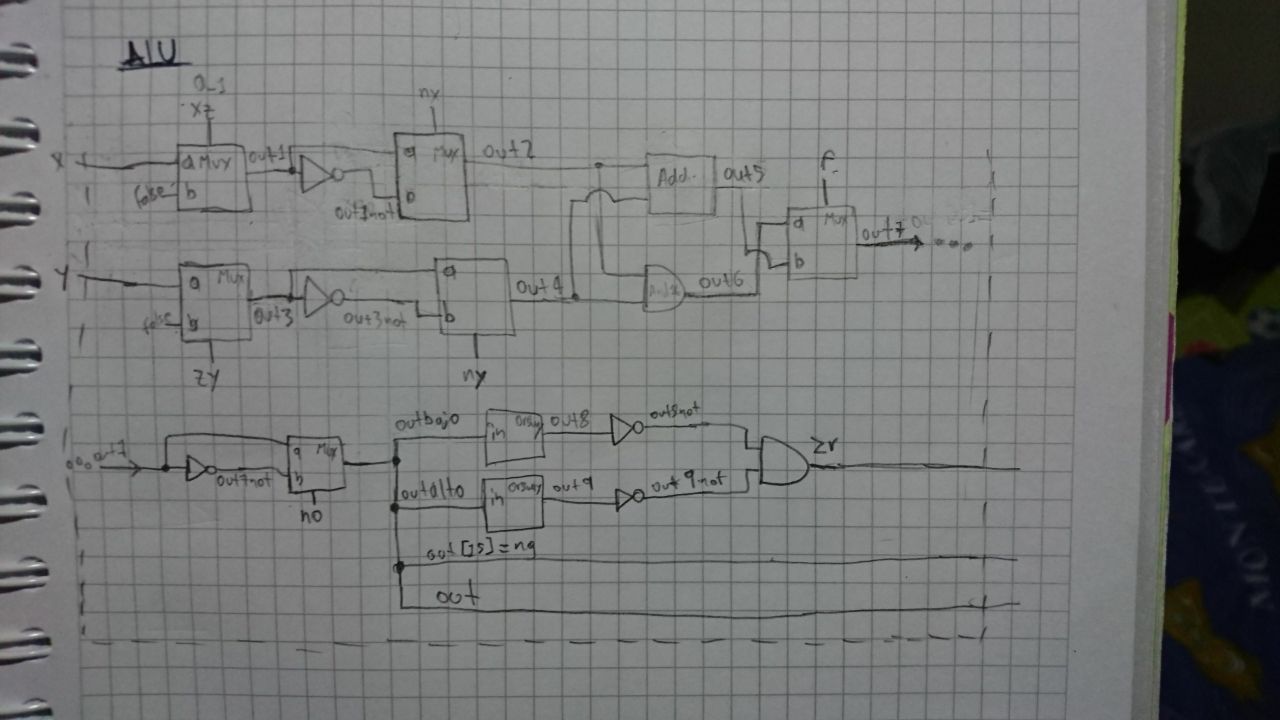 ALU
xz
nx
x
a Mux
false
b
out1
a Mux
b
out2
Add
out5
f
a Mux
b
out7
y
a Mux
false
b
out3
out3not
a
b
out4
out6
zy
ny
out7
out7not
a Mux
b
no
outbajo
in
out8
out8not
outalto
in
out9
out9not
zr
out[15]=ng
out